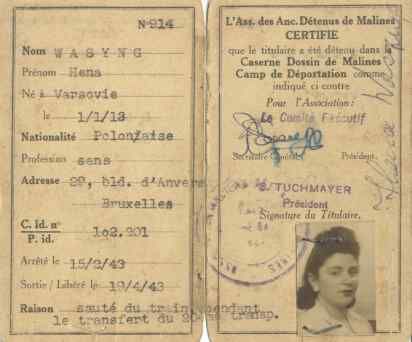 N° 914
Nom WASYNG
Prénom Hena
Né à Varsovie
le 1/1/13
Nationalité Polonaise
Profession sans
Adresse 29, bld. d'Anvers
Bruxelles
C. id. n°
P. id. 102.201
Arrêté le 15/2/43
Sortie / Libéré le 19/4/43
Raison sauté du train pendant
le transfert du 20me transp.
L'Ass. des Anc. Détenus de Malines
CERTIFIE
que le titulaire a été détenu dans la
Caserne Dossin de Malines
Camp de Déportation comme
indiqué ci contre
Pour l'Association:
Le Comité Exécutif
Secrétaire Général, Président,
S. TUCHMAYER
Président
Signature du Titulaire,